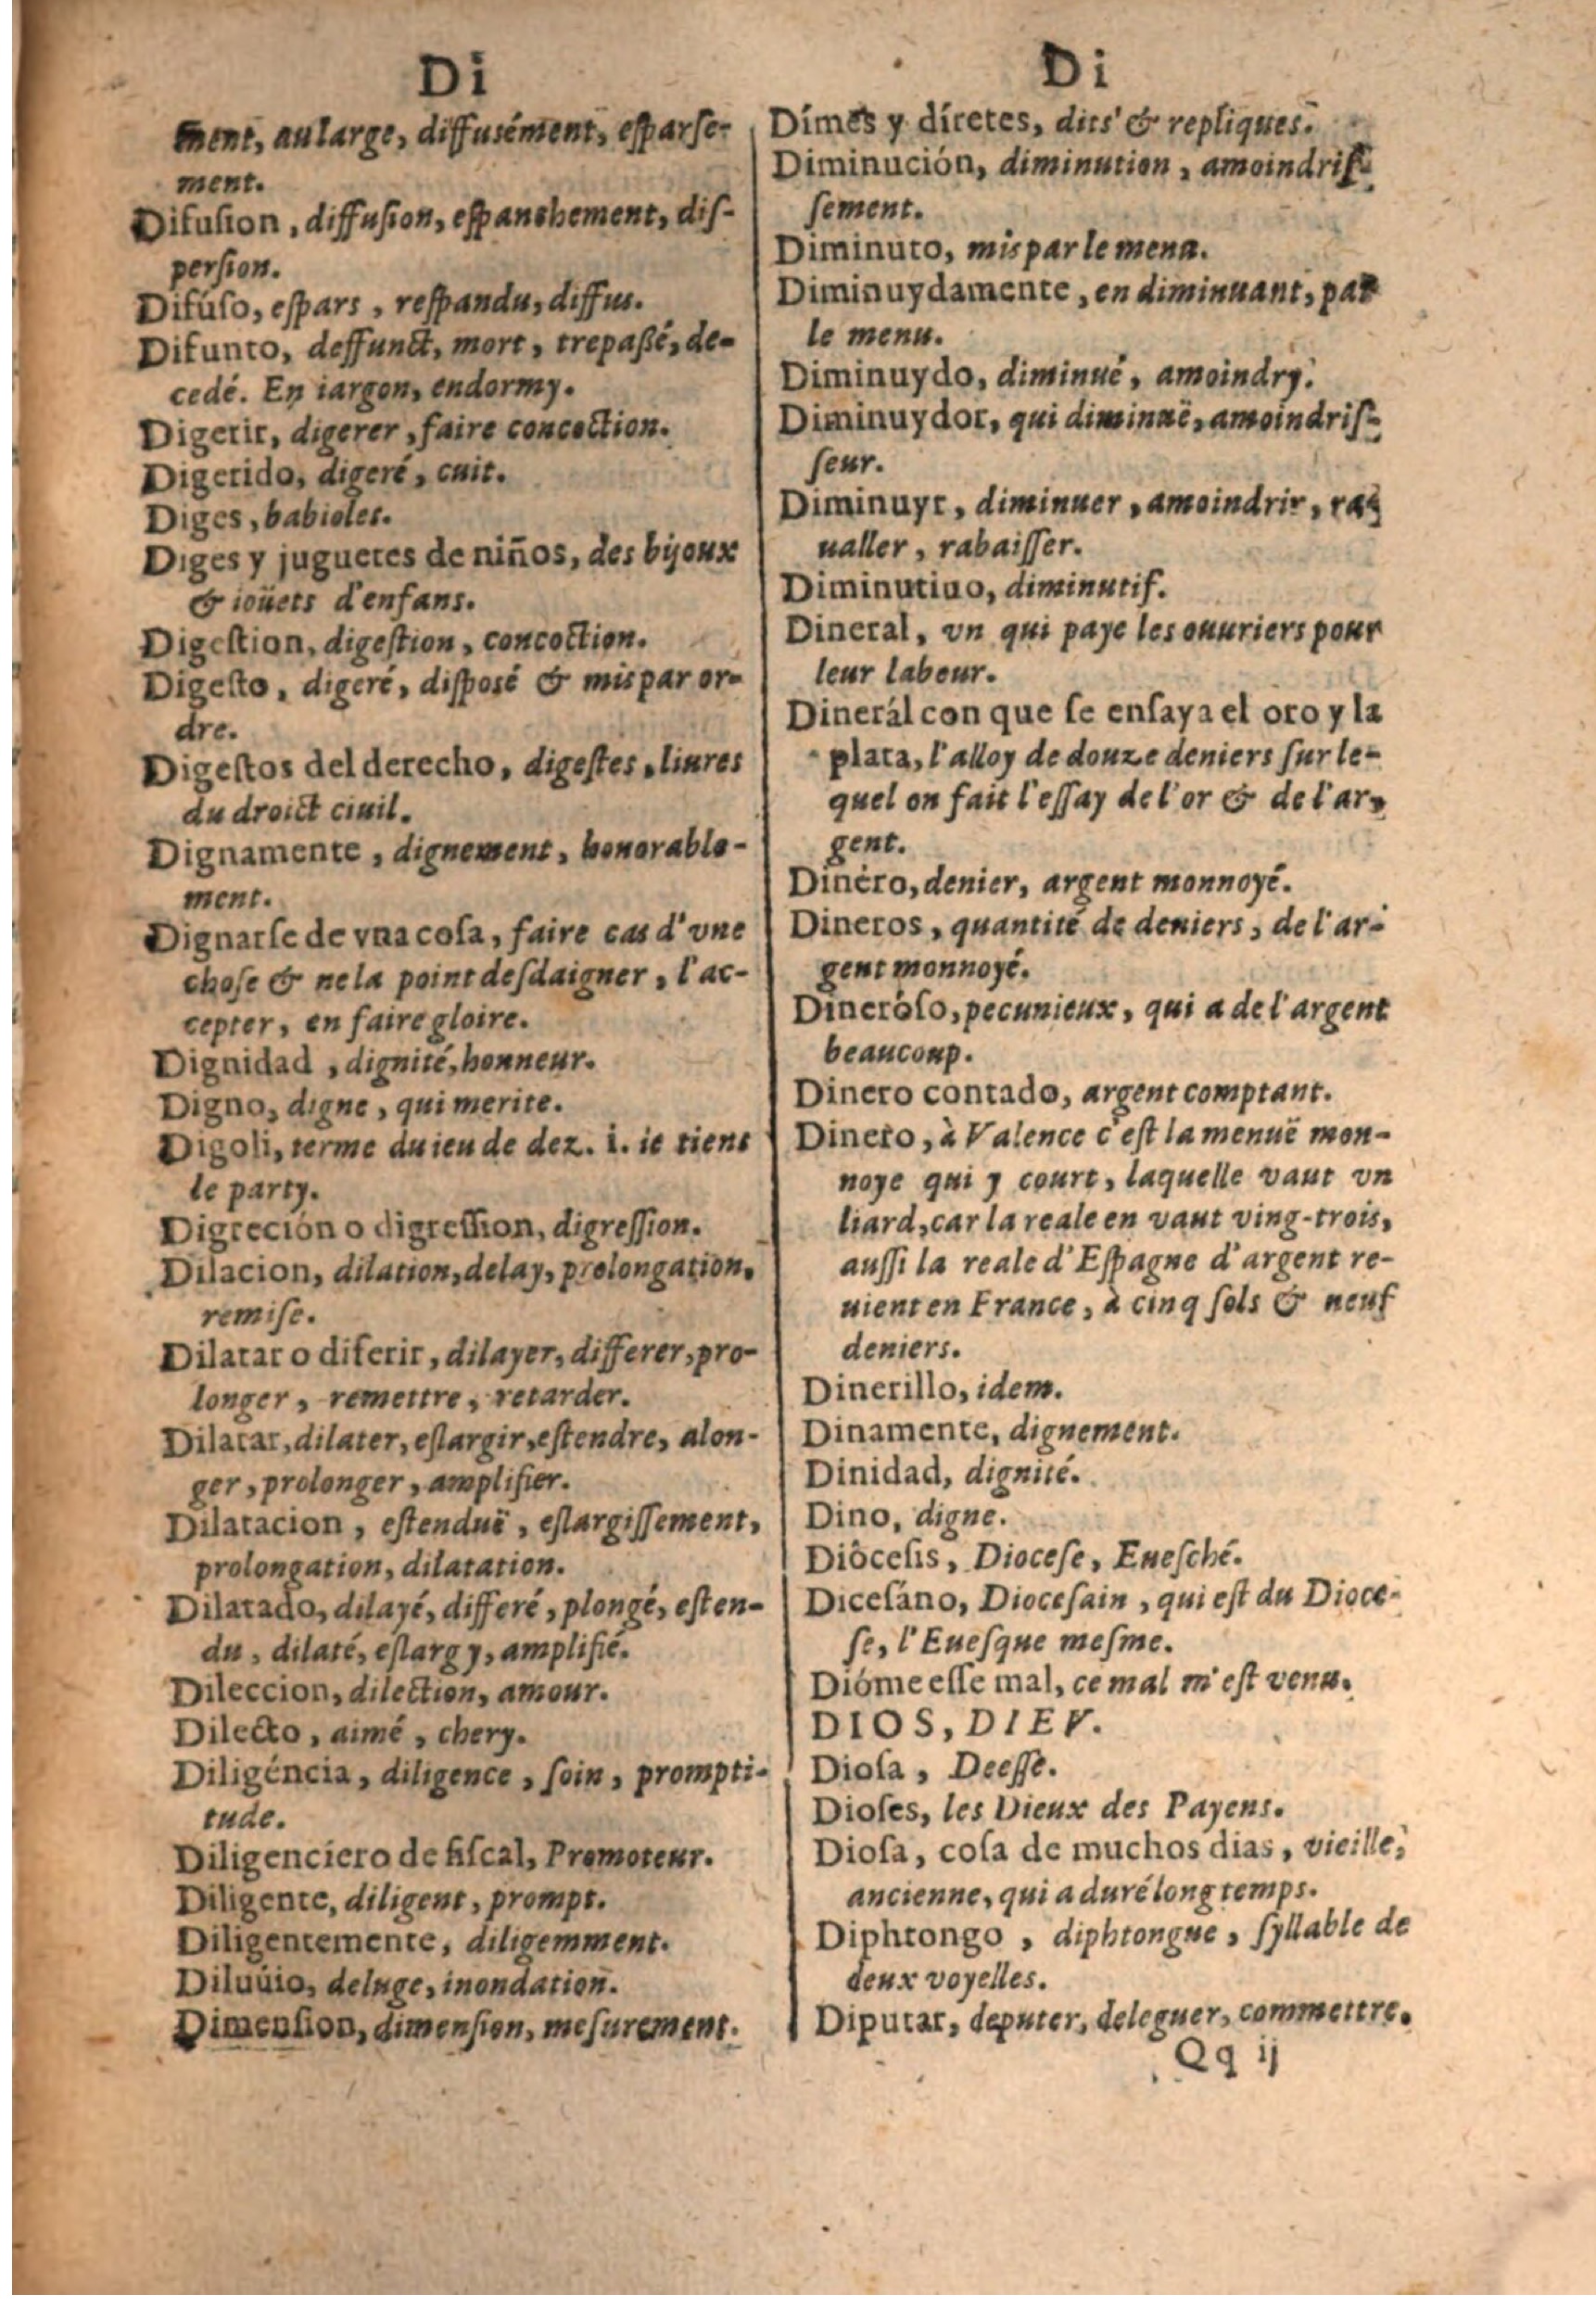 Di
ment, au large, diffusément, esparse-
ment.
Difusion, diffusion, espanchement, dis-
persion.
Difúso, espars, respandu, diffus.
Difunto, deffunct, mort, trepaßé, de-
cedé. En iargon, endormy.
Digerir, digerer, faire concoction.
Digerido, digeré, cuit.
Diges, babioles.
Diges y juguetes de niños, des bijoux
& ioüets d'enfans.
Digestion, digestion, concoction.
Digesto, digeré, disposé & mis par or-
dre.
Digestos del derecho, digestes, liures
du droict ciuil.
Dignamente, dignement, honorable-
ment.
Dignarse de vna cosa, faire cas d'vne
chose & ne la point desdaigner, l'ac-
cepter, en faire gloire.
Dignidad, dignité, honneur.
Digno, digne, qui merite.
Digoli, terme du ieu de dez. i. ie tiens
le party.
Digreción o digression, digression.
Dilacion, dilation, delay, prolongation,
remise.
Dilatar o diferir, dilayer, differer, pro-
longer, remettre, retarder.
Dilatar, dilater, eslargir, estendre, alon-
ger, prolonger, amplifier.
Dilatacion, estenduë, eslargissement,
prolongation, dilatation.
Dilatado, dilayé, differé, plongé, esten-
du, dilaté, eslargy, amplifié.
Dileccion, dilection, amour.
Dilecto, aimé, chery.
Diligéncia, diligence, soin, prompti-
tude.
Diligenciero de fiscal, Promoteur.
Diligente, diligent, prompt.
Diligentemente, diligemment.
Diluúio, deluge, inondation.
Dimension, dimension, mesurement.
Di
Dímes y díretes, dits & repliques.
Diminución, diminution, amoindris-
sement.
Diminuto, mis par le menu.
Diminuydamente, en diminuant, par
le menu.
Diminuydo, diminué, amoindry.
Diminuydor, qui diminuë, amoindris-
seur.
Diminuyr, diminuer, amoindrir, ra-
ualler, rabaisser.
Diminutiuo, diminutif.
Dineral, vn qui paye les ouuriers pour
leur labeur.
Dinerál con que se ensaya el oro y la
plata, l'alloy de douze deniers sur le-
quel on fait l'essay de l'or & de l'ar-
gent.
Dinéro, denier, argent monnoyé.
Dineros, quantité de deniers, de l'ar-
gent monnoyé.
Dineróso, pecunieux, qui a de l'argent
beaucoup.
Dinero contado, argent comptant.
Dinero, à Valence c'est la menuë mon-
noye qui y court, laquelle vaut vn
liard, car la reale en vaut ving-trois,
aussi la reale d'Espagne d'argent re-
uient en France, à cinq sols & neuf
deniers.
Dinerillo, idem.
Dinamente, dignement.
Dinidad, dignité.
Dino, digne.
Diôcesis, Diocese, Euesché.
Dicesáno, Diocesain, qui est du Dioce-
se, l'Euesque mesme.
Dióme esse mal, ce mal m'est venu.
DIOS, DIEV.
Diosa, Deesse.
Dioses, les Dieux des Payens.
Diosa, cosa de muchos dias, vieille,
ancienne, qui a duré long temps.
Diphtongo, diphtongue, syllable de
deux voyelles.
Diputar, deputer, deleguer, commettre.
Qq ij